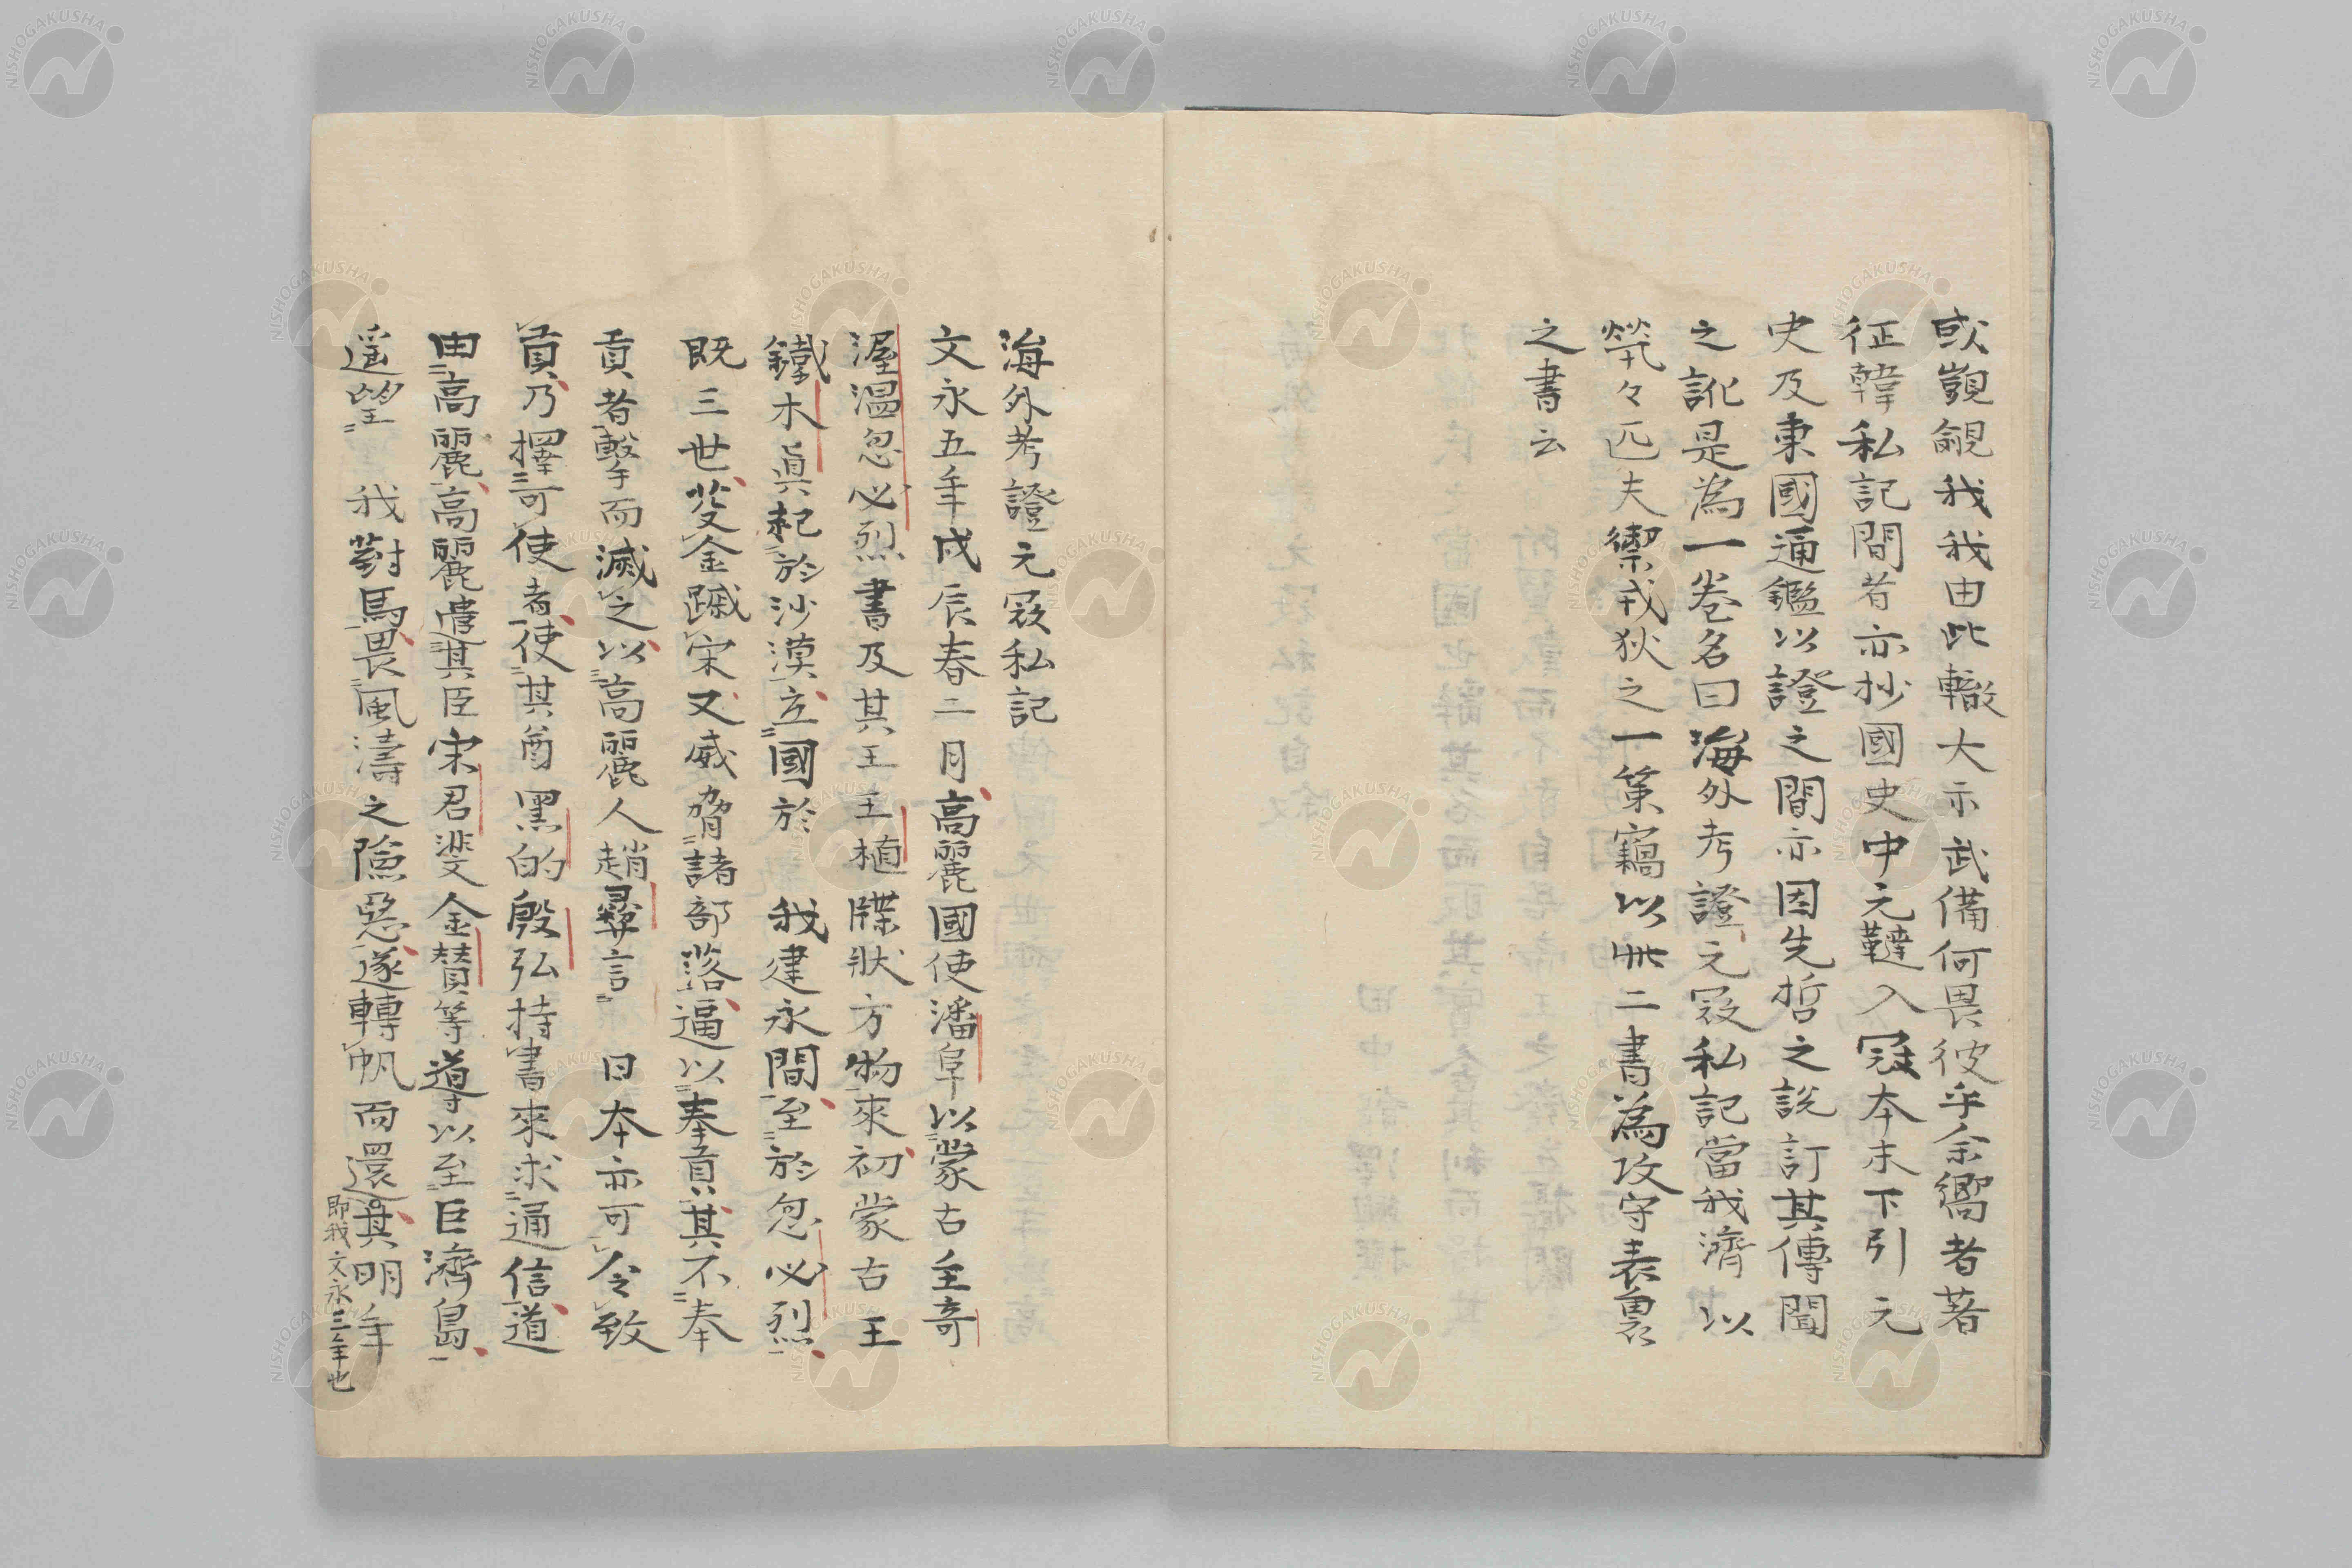 或覬覦我我由此轍大示武備何畏彼乎余嚮者著
征韓私記間者亦抄國史中元韃入冦本末下引元
史及東國通鑑以證之間亦因先哲之説訂其傳聞
之訛是為一巻名曰海外考證元冦私記當我濟以
煢々匹夫禦戎狄之一策竊以此二書為攻守表裏
之書云
海外考證元冦私記
文永五年戊辰春二月高麗國使潘阜以蒙古主奇
渥温忽必烈書及其王王植牒状方物來初蒙古王
鐵木真起於沙漠立國於 我建永間至於忽必烈
既三世芟金蹴宋又威脅諸部落逼以奉貢其不奉
貢者毄而滅之以高麗人趙彝言 日本亦可令致
貢乃擇可使者使其酋黑的殷弘持書來求通信道
由高麗高麗遣其臣宋君斐金賛等導以至巨濟島
遥望 我對馬畏風濤之險惡遂轉帆而還其明年
即我文永三年也
NISHOGAKUSHA